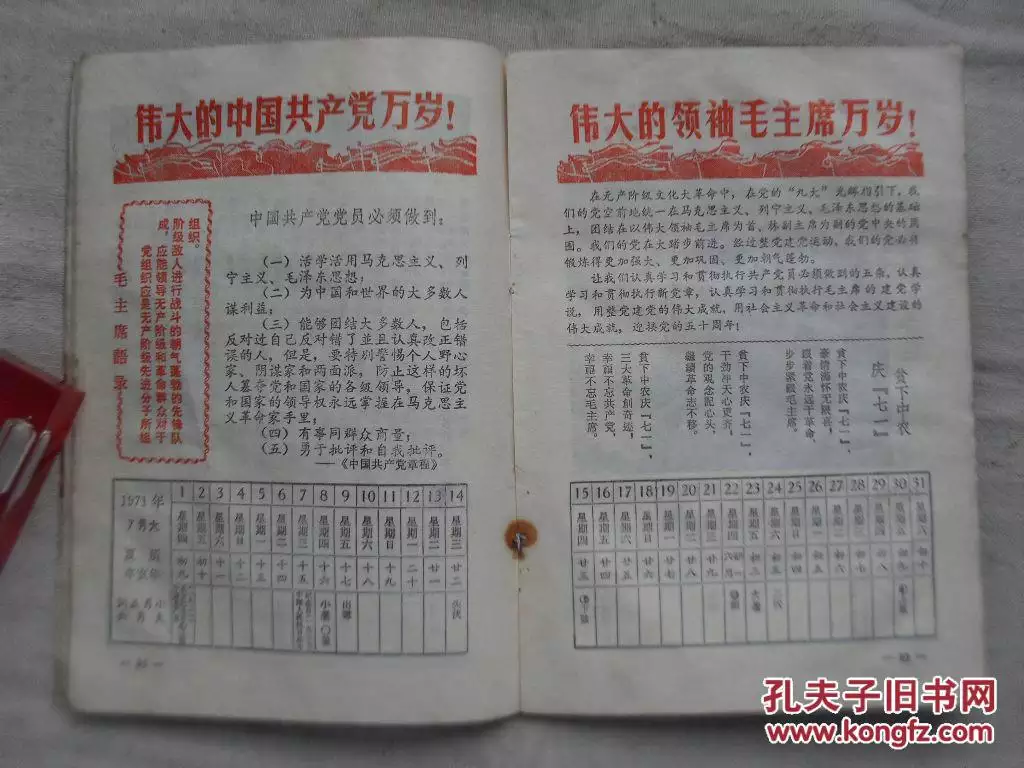 伟大的中国共产党万岁！
党组织应是无产阶级先进分子所组
成，应能领导无产阶级和革命群众对于
阶级敌人进行战斗的朝气蓬勃的先锋队
组织。
毛主席语录
中国共产党党员必须做到：
（一）活学活用马克思主义、列
宁主义、毛泽东思想；
（二）为中国和世界的大多数人
谋利益；
（三）能够团结大多数人，包括
反对过自己反对错了并且认真改正错
误的人，但是，要特别警惕个人野心
家、阴谋家和两面派，防止这样的坏
人篡夺党和国家的各级领导，保证党
和国家的领导权永远掌握在马克思主
义革命家手里；
（四）有事同群众商量；
（五）勇于批评和自我批评。
——《中国共产党章程》
1 2 3 4 5 6 7 8 9 10 11 12 13 14
星期四 星期五 星期六 星期日 星期一 星期二 星期三 星期四 星期五 星期六 星期日 星期一 星期二 星期三
伟大的领袖毛主席万岁！
在无产阶级文化大革命中，在党的“九大”光辉指引下，我
们的党空前地统一在马克思主义、列宁主义、毛泽东思想的基础
上，团结在以伟大领袖毛主席为首、林副主席为副的党中央的周
围。我们的党在大踏步前进。经过整党建党运动，我们的党必将
锻炼得更加强大、更加巩固、更加朝气蓬勃。
让我们认真学习和贯彻执行共产党员必须做到的五条，认真
学习和贯彻执行新党章，认真学习和贯彻执行毛主席的建党学
说，用整党建党的伟大成就，用社会主义革命和社会主义建设的
伟大成就，迎接党的五十周年！
贫下中农
庆『七一』
贫下中农庆『七一』，
豪情满怀无限喜，
跟着党永远干革命，
步步紧跟毛主席。
贫下中农庆『七一』，
干劲冲天心更齐，
党的观念记心头，
继续革命志不移。
贫下中农庆『七一』，
三大革命创奇迹，
幸福不忘共产党，
幸福不忘毛主席。
15 16 17 18 19 20 21 22 23 24 25 26 27 28 29 30 31
星期四 星期五 星期六 星期日 星期一 星期二 星期三 星期四 星期五 星期六 星期日 星期一 星期二 星期三 星期四 星期五 星期六
孔夫子旧书网
www.kongfz.com